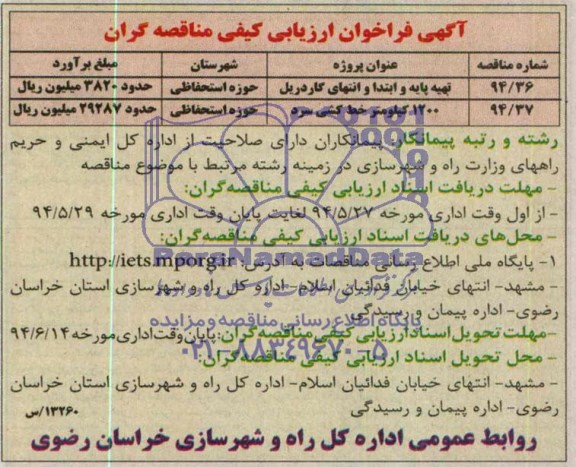 آگهی فراخوان ارزیابی کیفی مناقصه گران
شماره مناقصه عنوان پروژه شهرستان مبلغ برآورد
۹۴/۳۶ تهیه پایه و ابتدا و انتهای گاردریل حوزه استحفاظی حدود ۳۸۲۰ میلیون ریال
۹۴/۳۷ ۱۲۰۰ کیلومتر خط کشی سرد حوزه استحفاظی حدود ۲۹۲۸۷ میلیون ریال
رشته و رتبه پیمانکار: پیمانکاران دارای صلاحیت از اداره کل ایمنی و حریم
راههای وزارت راه و شهرسازی در زمینه رشته مرتبط با موضوع مناقصه
- مهلت دریافت اسناد ارزیابی کیفی مناقصه‌گران:
- از اول وقت اداری مورخه ۹۴/۵/۲۷ لغایت پایان وقت اداری مورخه ۹۴/۵/۲۹
- محل‌های دریافت اسناد ارزیابی کیفی مناقصه‌گران:
ParsNamadData
۱- پایگاه ملی اطلاع رسانی مناقصات به آدرس: http://iets.mporg.ir
- مشهد- انتهای خیابان فدائیان اسلام- اداره کل راه و شهرسازی استان خراسان
رضوی- اداره پیمان و رسیدگی
پایگاه اطلاع رسانی مناقصه و مزایده
-مهلت تحویل اسناد ارزیابی کیفی مناقصه‌گران: پایان وقت اداری مورخه ۹۴/۶/۱۴
۰۲۱-۸۸۳۴۹۶۷۰-۵
- محل تحویل اسناد ارزیابی کیفی مناقصه گران:
- مشهد- انتهای خیابان فدائیان اسلام- اداره کل راه و شهرسازی استان خراسان
رضوی- اداره پیمان و رسیدگی ۱۳۲۶۰/س
روابط عمومی اداره کل راه و شهرسازی خراسان رضوی